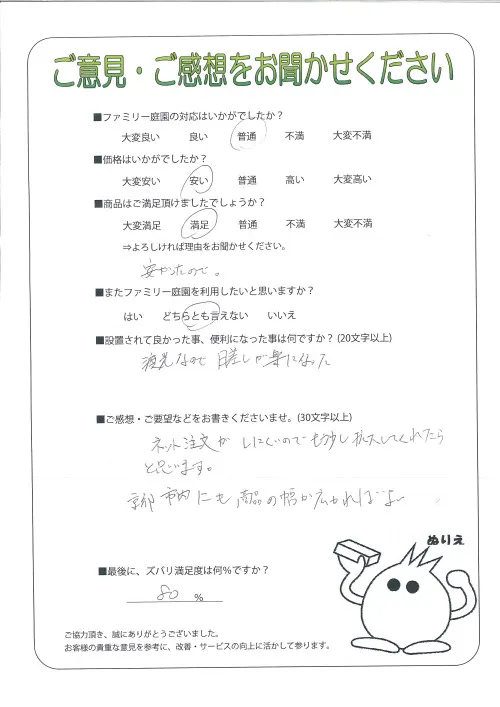 ご意見・ご感想をお聞かせください
■ファミリー庭園の対応はいかがでしたか？
大変良い 良い 普通 不満 大変不満
■価格はいかがでしたか？
大変安い 安い 普通 高い 大変高い
■商品はご満足頂けましたでしょうか？
大変満足 満足 普通 不満 大変不満
⇒よろしければ理由をお聞かせください。
安かったので。
■またファミリー庭園を利用したいと思いますか？
はい どちらとも言えない いいえ
■設置されて良かった事、便利になった事は何ですか？(20文字以上)
なので 日差しが楽になった
■ご感想・ご要望などをお書きくださいませ。(30文字以上)
ネット注文が しにくいのでもう少し拡大してくれたら
と思います。
京都市内にも 商品の幅が広がればよい
ぬりえ
■最後に、ズバリ満足度は何％ですか？
80 %
ご協力頂き、誠にありがとうございました。
お客様の貴重な意見を参考に、改善・サービスの向上に活かして参ります。